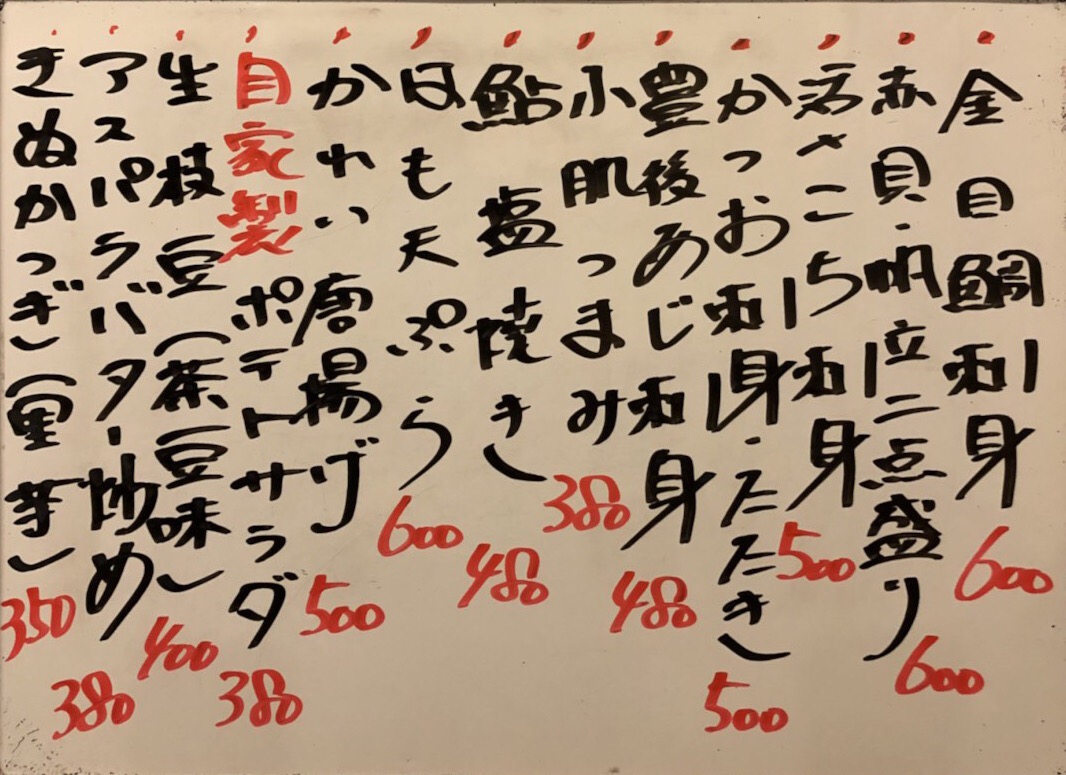 金目鯛刺身 600
赤貝・帆立二点盛り 600
活さこち刺身 500
かつお刺身・たたき 500
豊後あじ刺身 480
小肌つまみ 380
鮎塩焼き 480
はも天ぷら 600
かれい唐揚げ 500
自家製ポテトサラダ 380
生枝豆(茶豆味) 400
アスパラバター炒め 380
きぬかつぎ(里芋) 350